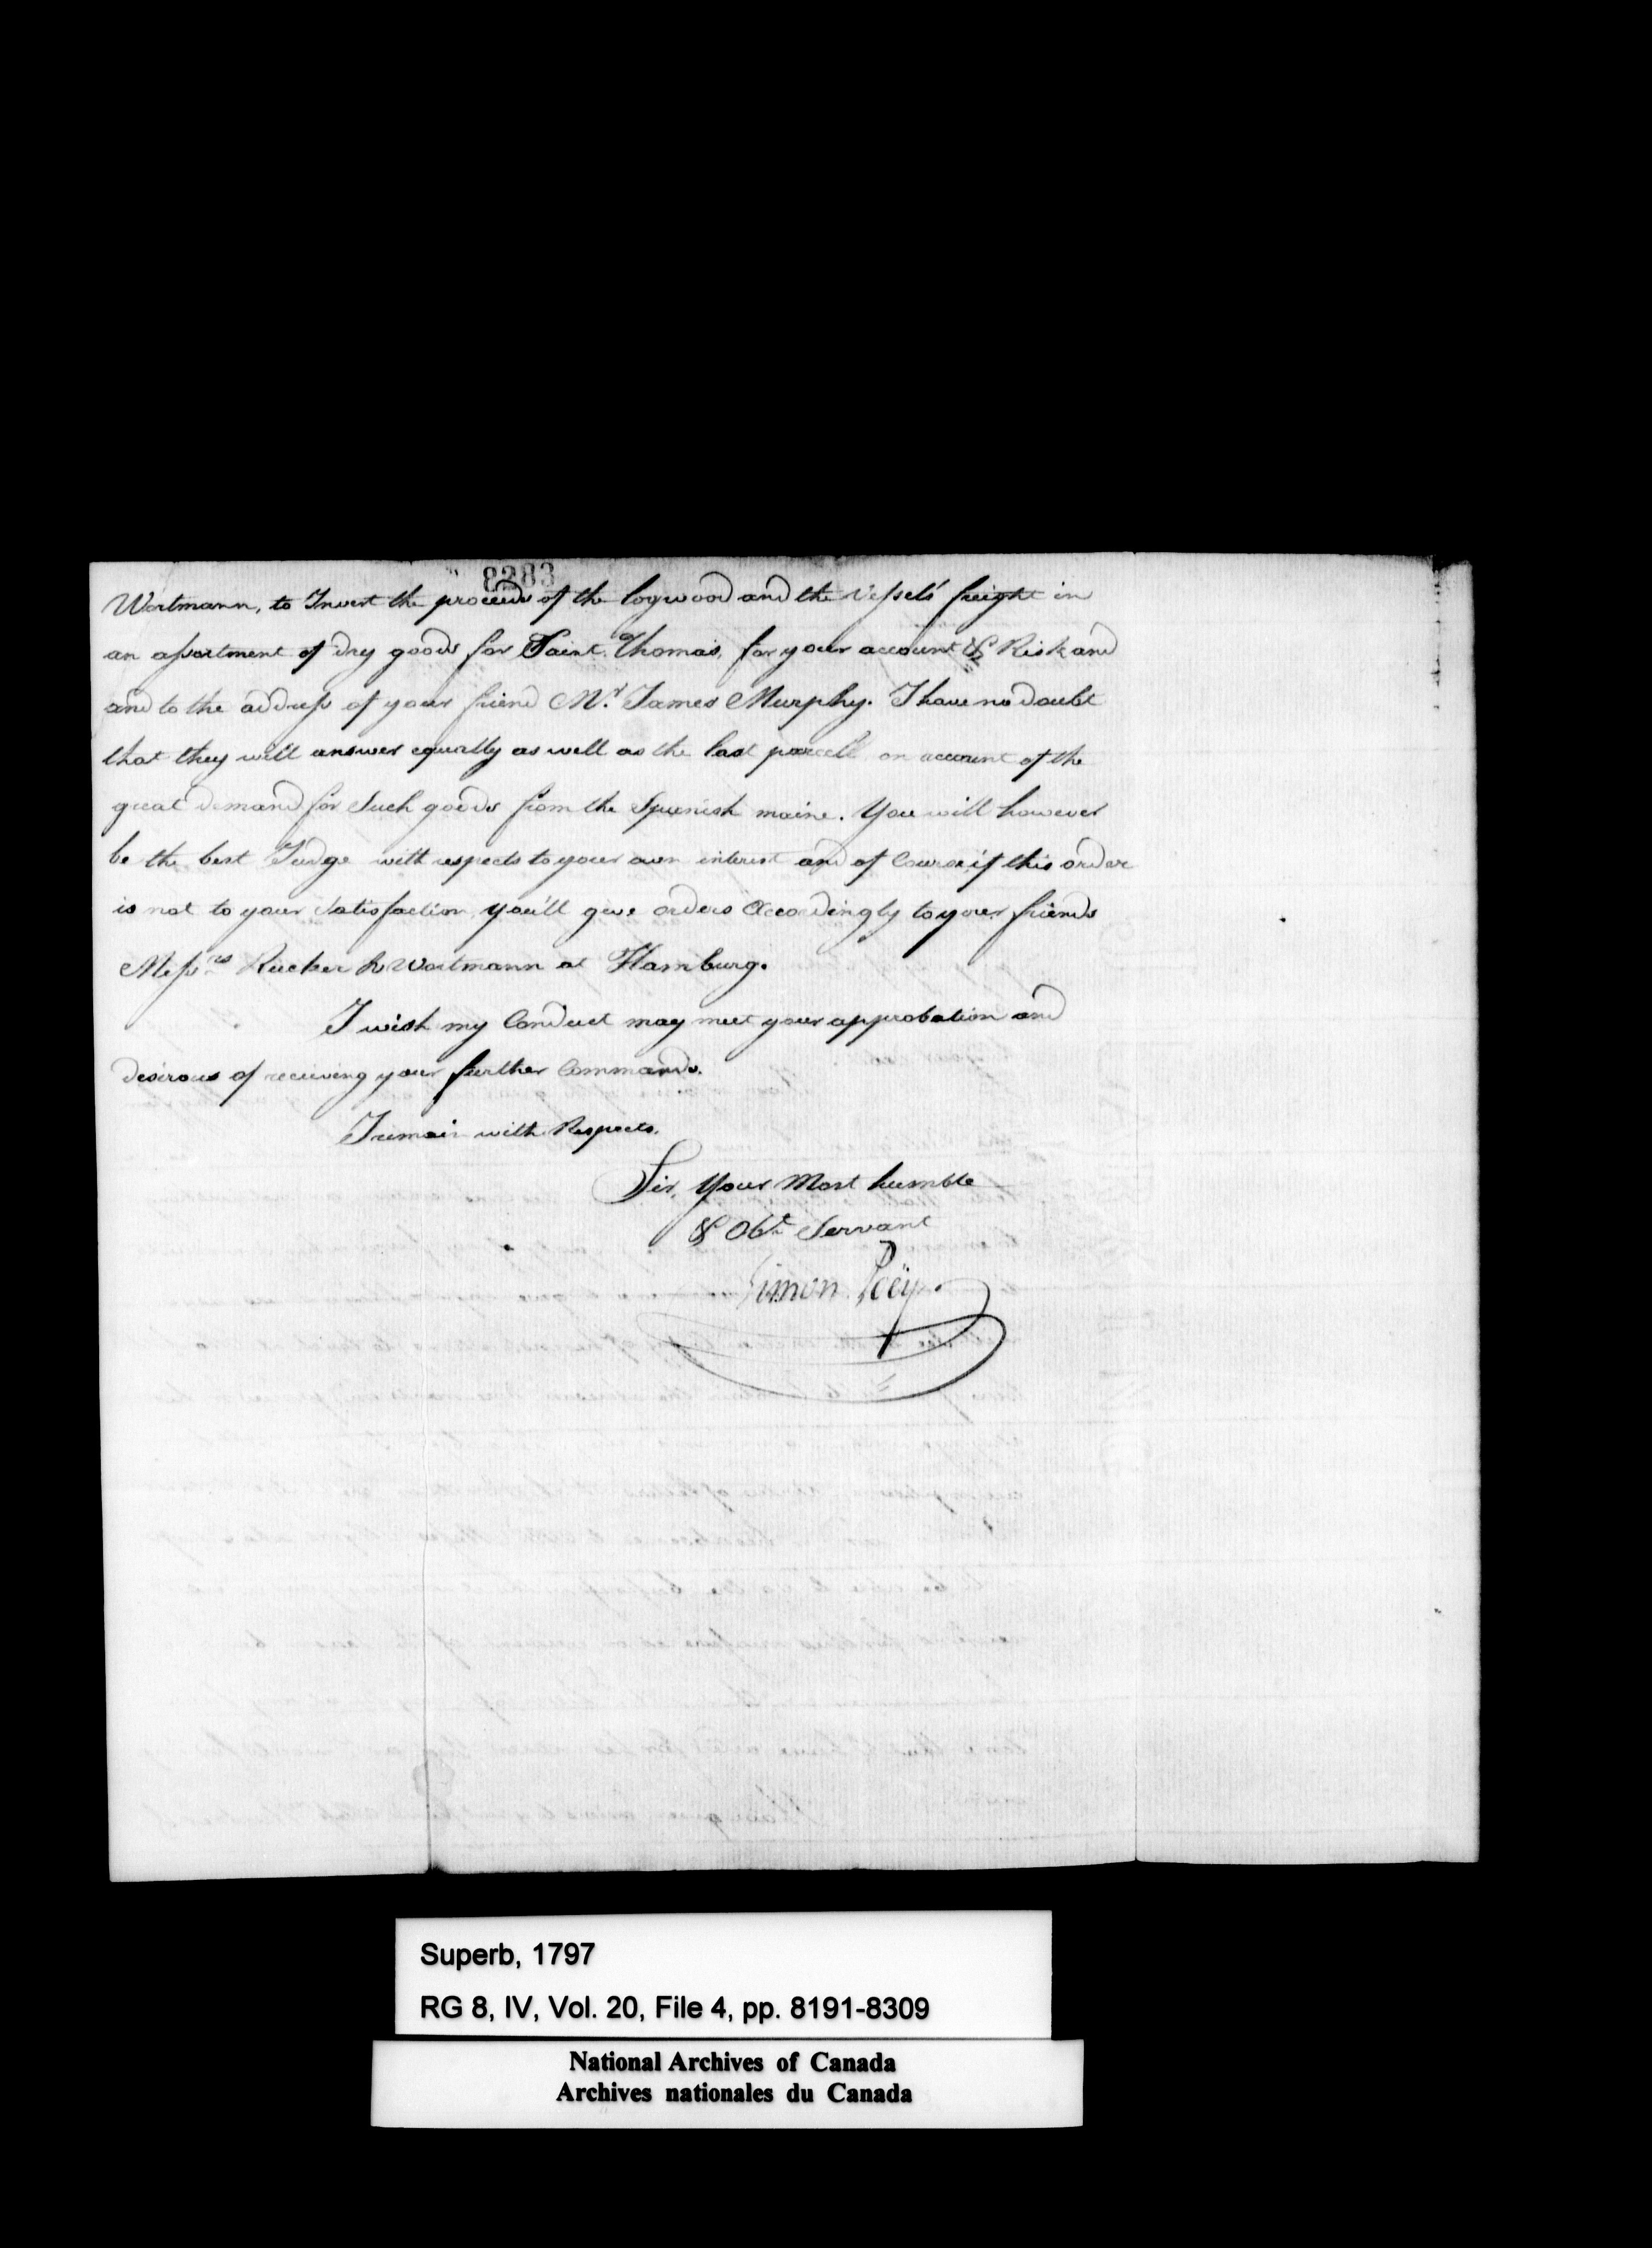 8283
Wortmann, to Invest the proceeds of the logwood and the Vessels' freight in
an assortment of dry goods for Saint Thomas, for your account & Risk and
and to the address of your friend Mr. James Murphy. I have no doubt
that they will answer equally as well as the last parcell on account of the
great demand for Such goods from the Spanish maine. You will however
be the best Judge with respects to your own interest and of Course if this order
is not to your Satisfaction you'll give orders Accordingly to your friends
Messrs Rücker & Wortmann at Hamburg.
I wish my Conduct may meet your approbation and
desirous of receiving your further Commands.
I remain with Respects.
Sir, Your Most humble
& Obt Servant
Simon Poëy.
Superb, 1797
RG 8, IV, Vol. 20, File 4, pp. 8191-8309
National Archives of Canada
Archives nationales du Canada